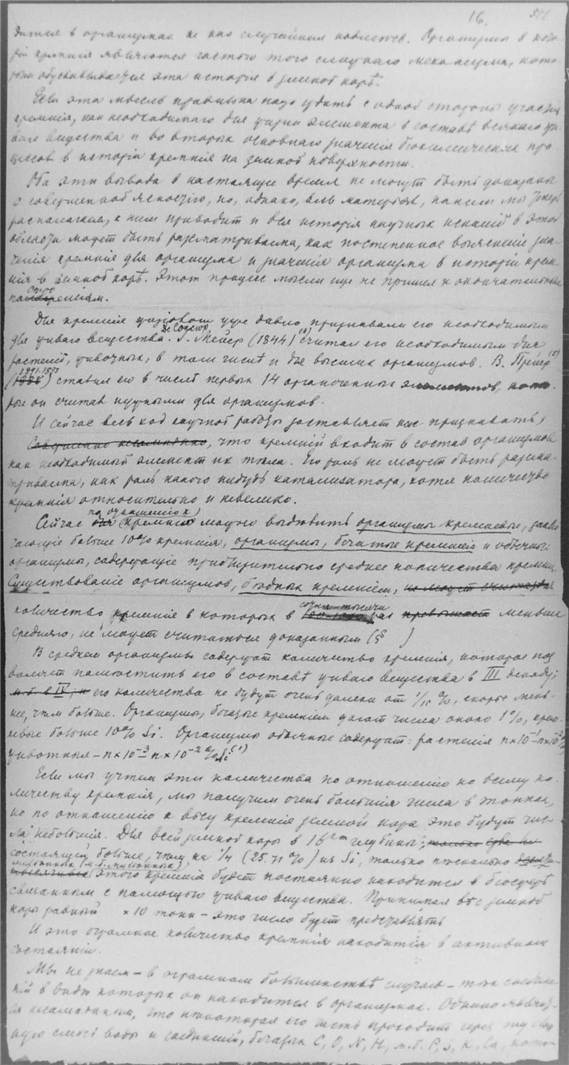 16.
дится в организмах не как случайная навлетов. Организмы в исто-
рiи кремния являются частью того сложного механизма, кото-
рым обусловливается эта история в земной корѣ.
Если эта мысль правильна надо ждать с одной стороны участия
кремния, как необходимаго для жизни элемента в составѣ всякаго жи-
ваго вещества и во вторых основнаго значенiя биохимических про-
цессов в исторiи кремния на земной поверхности.
Оба эти вывода в настоящее время не могут быть доказаны
с совершенной ясностью, но, однако, весь матерьял, каким мы теперь
располагаем, к ним приводит и вся история научных исканiй в этой
области может быть рассматриваема, как постепенное выясненiе зна-
ченiя кремния для организма и значенiя организма в исторiи крем-
ния в земной корѣ. Этот процесс мысли еще не пришел к окончательным
Для кремния физiологи уже давно признавали его необходимым
для живаго вещества. Мейер (1844) считал его необходимым для
растенiй, животных, в том числѣ и для высших организмов. В. Прейер
ставил его в числѣ первых 14 органогенных элементов, кото-
рые он считал нужными для организмов.
И сейчас весь ход научной работы заставляет нас признавать,
что кремнiй входит в состав организмов
как необходимый элемент их тѣла. Его роль не может быть рассма-
триваема, как роль какого нибудь катализатора, хотя количество
кремния относительно и невелико.
Сейчас по отношению к кремнию можно выдѣлить организмы кремневые, заклю-
чающiе больше 10% кремния, организмы, богатые кремнием и обычные
организмы, содержащiе приблизительно среднее количество кремния.
Существованiе организмов, бѣдных кремнием,
количество кремния в которых в сотни тысячи раз меньше
средняго, не может считаться доказанным (§ )
В среднем организмы содержат количество кремния, которое поз-
воляет помѣстить его в составѣ живаго вещества в III декаду;
его количества не будут очень далеки от 1/10 %, скорѣе мень-
ше, чѣм больше. Организмы, богатые кремнием дают числа около 1%, крем-
невые больше 10% Si. Организмы обычные содержат: растенiя n×10⁻¹-n×10⁻²%
животныя - n×10⁻³-n×10⁻²% Si
Если мы учтем эти количества по отношению ко всему ко-
личеству кремния, мы получим очень большiя числа в тоннах,
но по отношению к всему кремнию земной коры это будут чис-
ла небольшiя. Для всей земной коры в 16 км глубины,
состоящей больше, чѣм на 1/4 (25.71%) из Si, только нѣсколько
этого кремния будет постоянно находится в бiосферѣ
связанным с помощью живаго вещества. Принимая вѣс земной
коры равный ×10 тонн - это число будет представлять
И это огромное количество кремния находится в активном
состоянiи.
Мы не знаем - в огромном большинствѣ случаев - тѣх соедине-
нiй в видѣ которых он находится в организмах. Однако является
несомнѣнным, что нѣкоторая его часть проходит через ту
смѣсь воды и соединенiй, богатых C, O, N, H, м.б. P, S, K, Ca, кото-